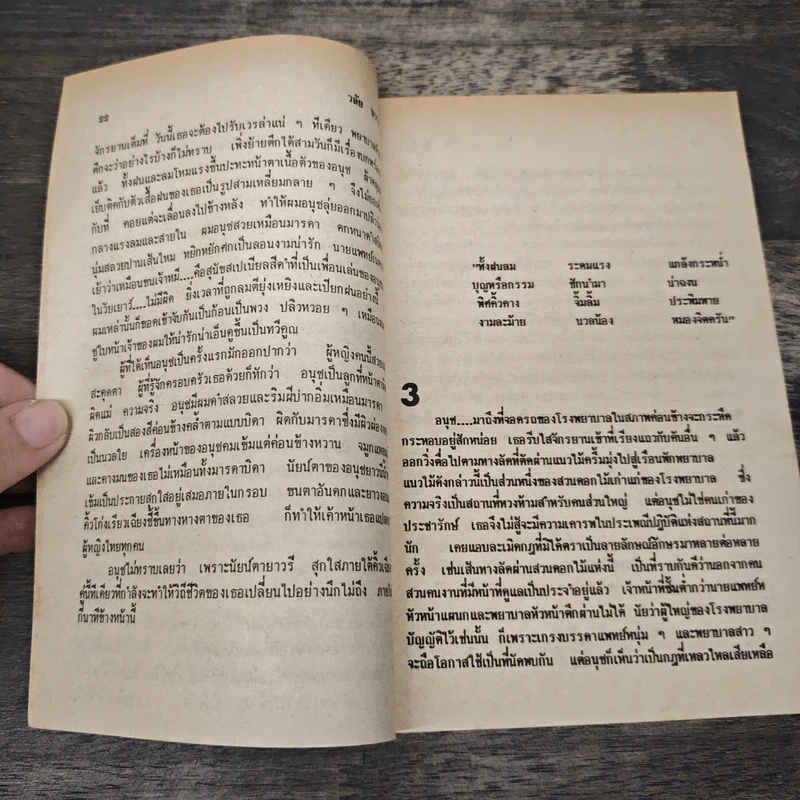 ๒๒
วลัย
จักรยานเต็มที่ วันนี้เธอจะต้องไปรับเวรล่าแน่ ๆ ทีเดียว
ตึกจะว่าอย่างไรบ้างก็ไม่ทราบ เพิ่งย้ายตึกได้สามวันก็มีเรื่อง
แล้ว ทั้งฝนและลมโหมแรงขึ้นปะทะหน้าตาเนื้อตัวของอนุช
เย็บติดกับตัวเสื้อฝนของเธอเป็นรูปสามเหลี่ยมกลาย ๆ จึงไม่
กับที่ คอยแต่จะเลื่อนลงไปข้างหลัง ทำให้ผมอนุชลุ่ยออกมา
กลางแรงลมและสายใน ผมอนุชสวยเหมือนมารดา ดกหนา
นุ่มสลวยปานเส้นไหม หยิกหยักศกเป็นลอนงามน่ารัก นายแพทย์
เย้าว่าเหมือนขนเจ้าหมี....คือสุนัขสเปเนียลสีดำที่เป็นเพื่อนเล่นของ
ในวัยเยาว์....ไม่มีผิด ยิ่งเวลาที่ถูกลมตียุ่งเหยิงและเปียกฝนอย่างนี้
ผมเหล่านั้นก็ขอดเข้าจับกันเป็นก้อนเป็นพวง ปลิวหวอย ๆ เหมือน
ชูใบหน้าเจ้าของผมให้น่ารักน่าเอ็นดูขึ้นเป็นทวีคูณ
ผู้ที่ได้เห็นอนุชเป็นครั้งแรกมักออกปากว่า ผู้หญิงคนนี้สวย
สะดุดตา ผู้ที่รู้จักครอบครัวเธอด้วยก็ทักว่า อนุชเป็นลูกที่หน้าตา
ผิดแม่ ความจริง อนุชมีผมดำสลวยและริมฝีปากอิ่มเหมือนมารดา
ผิวกลับเป็นสองสีค่อนข้างคล้ำตามแบบบิดา ผิดกับมารดาซึ่งมีผิวผ่อง
เป็นนวลใย เครื่องหน้าของอนุชคมเข้มแต่ค่อนข้างหวาน จมูก
และคางมนของเธอไม่เหมือนทั้งมารดาบิดา นัยน์ตาของอนุชยาวรี
เข้มเป็นประกายสุกใสอยู่เสมอภายในกรอบ ขนตาอันดกและยาวงอน
คิ้วโก่งเรียวเฉียงชี้ขึ้นทางหางตาของเธอ ก็ทำให้เค้าหน้าเธอ
ผู้หญิงไทยทุกคน
อนุชไม่ทราบเลยว่า เพราะนัยน์ตายาวรี สุกใสภายใต้คิ้ว
คู่นี้ทีเดียวที่กำลังจะทำให้วิถีชีวิตของเธอเปลี่ยนไปอย่างนึกไม่ถึง
กี่นาทีข้างหน้านี้
"ทั้งฝนลม ระดมแรง แกล้งกระหน่ำ
บุญหรือกรรม ชักนำมา น่าฉงน
พิศคิ้วคาง จิ้มลิ้ม ประพิมพาย
งามละม้าย นวลน้อง หมองจิตครัน"
3
อนุช....มาถึงที่จอดรถของโรงพยาบาลในสภาพค่อนข้างจะกระหืด
กระหอบอยู่สักหน่อย เธอรีบใสจักรยานเข้าที่เรียงแถวกับคันอื่น ๆ แล้ว
ออกวิ่งตื๋อไปตามทางลัดที่ตัดผ่านแนวไม้ครึ้มมุ่งไปสู่เรือนพักพยาบาล
แนวไม้ดังกล่าวนี้เป็นส่วนหนึ่งของสวนดอกไม้เก่าแก่ของโรงพยาบาล ซึ่ง
ความจริงเป็นสถานที่หวงห้ามสำหรับคนส่วนใหญ่ แต่อนุชไม่ใช่คนเก่าของ
ประชารักษ์ เธอจึงไม่สู้จะมีความเคารพในประเพณีปฏิบัติแห่งสถานที่นี้มาก
นัก เคยแอบละเมิดกฎที่มิได้ตราเป็นลายลักษณ์อักษรมาหลายต่อหลาย
ครั้ง เช่นเส้นทางลัดผ่านสวนดอกไม้แห่งนี้ เป็นที่ราบกันดีว่านอกจากคน
สวนคนงานที่มีหน้าที่ดูแลเป็นประจำอยู่แล้ว เจ้าหน้าที่ชั้นต่ำกว่านายแพทย์ห
หัวหน้าแผนกและพยาบาลหัวหน้าตึกผ่านไม่ได้ นัยว่าผู้ใหญ่ของโรงพยาบาล
บัญญัติไว้เช่นนั้น ก็เพราะเกรงบรรดาแพทย์หนุ่ม ๆ และพยาบาลสาว ๆ
จะถือโอกาสใช้เป็นที่นัดพบกัน แต่อนุชก็เห็นว่าเป็นกฎที่เหลวไหลเสียเหลือ